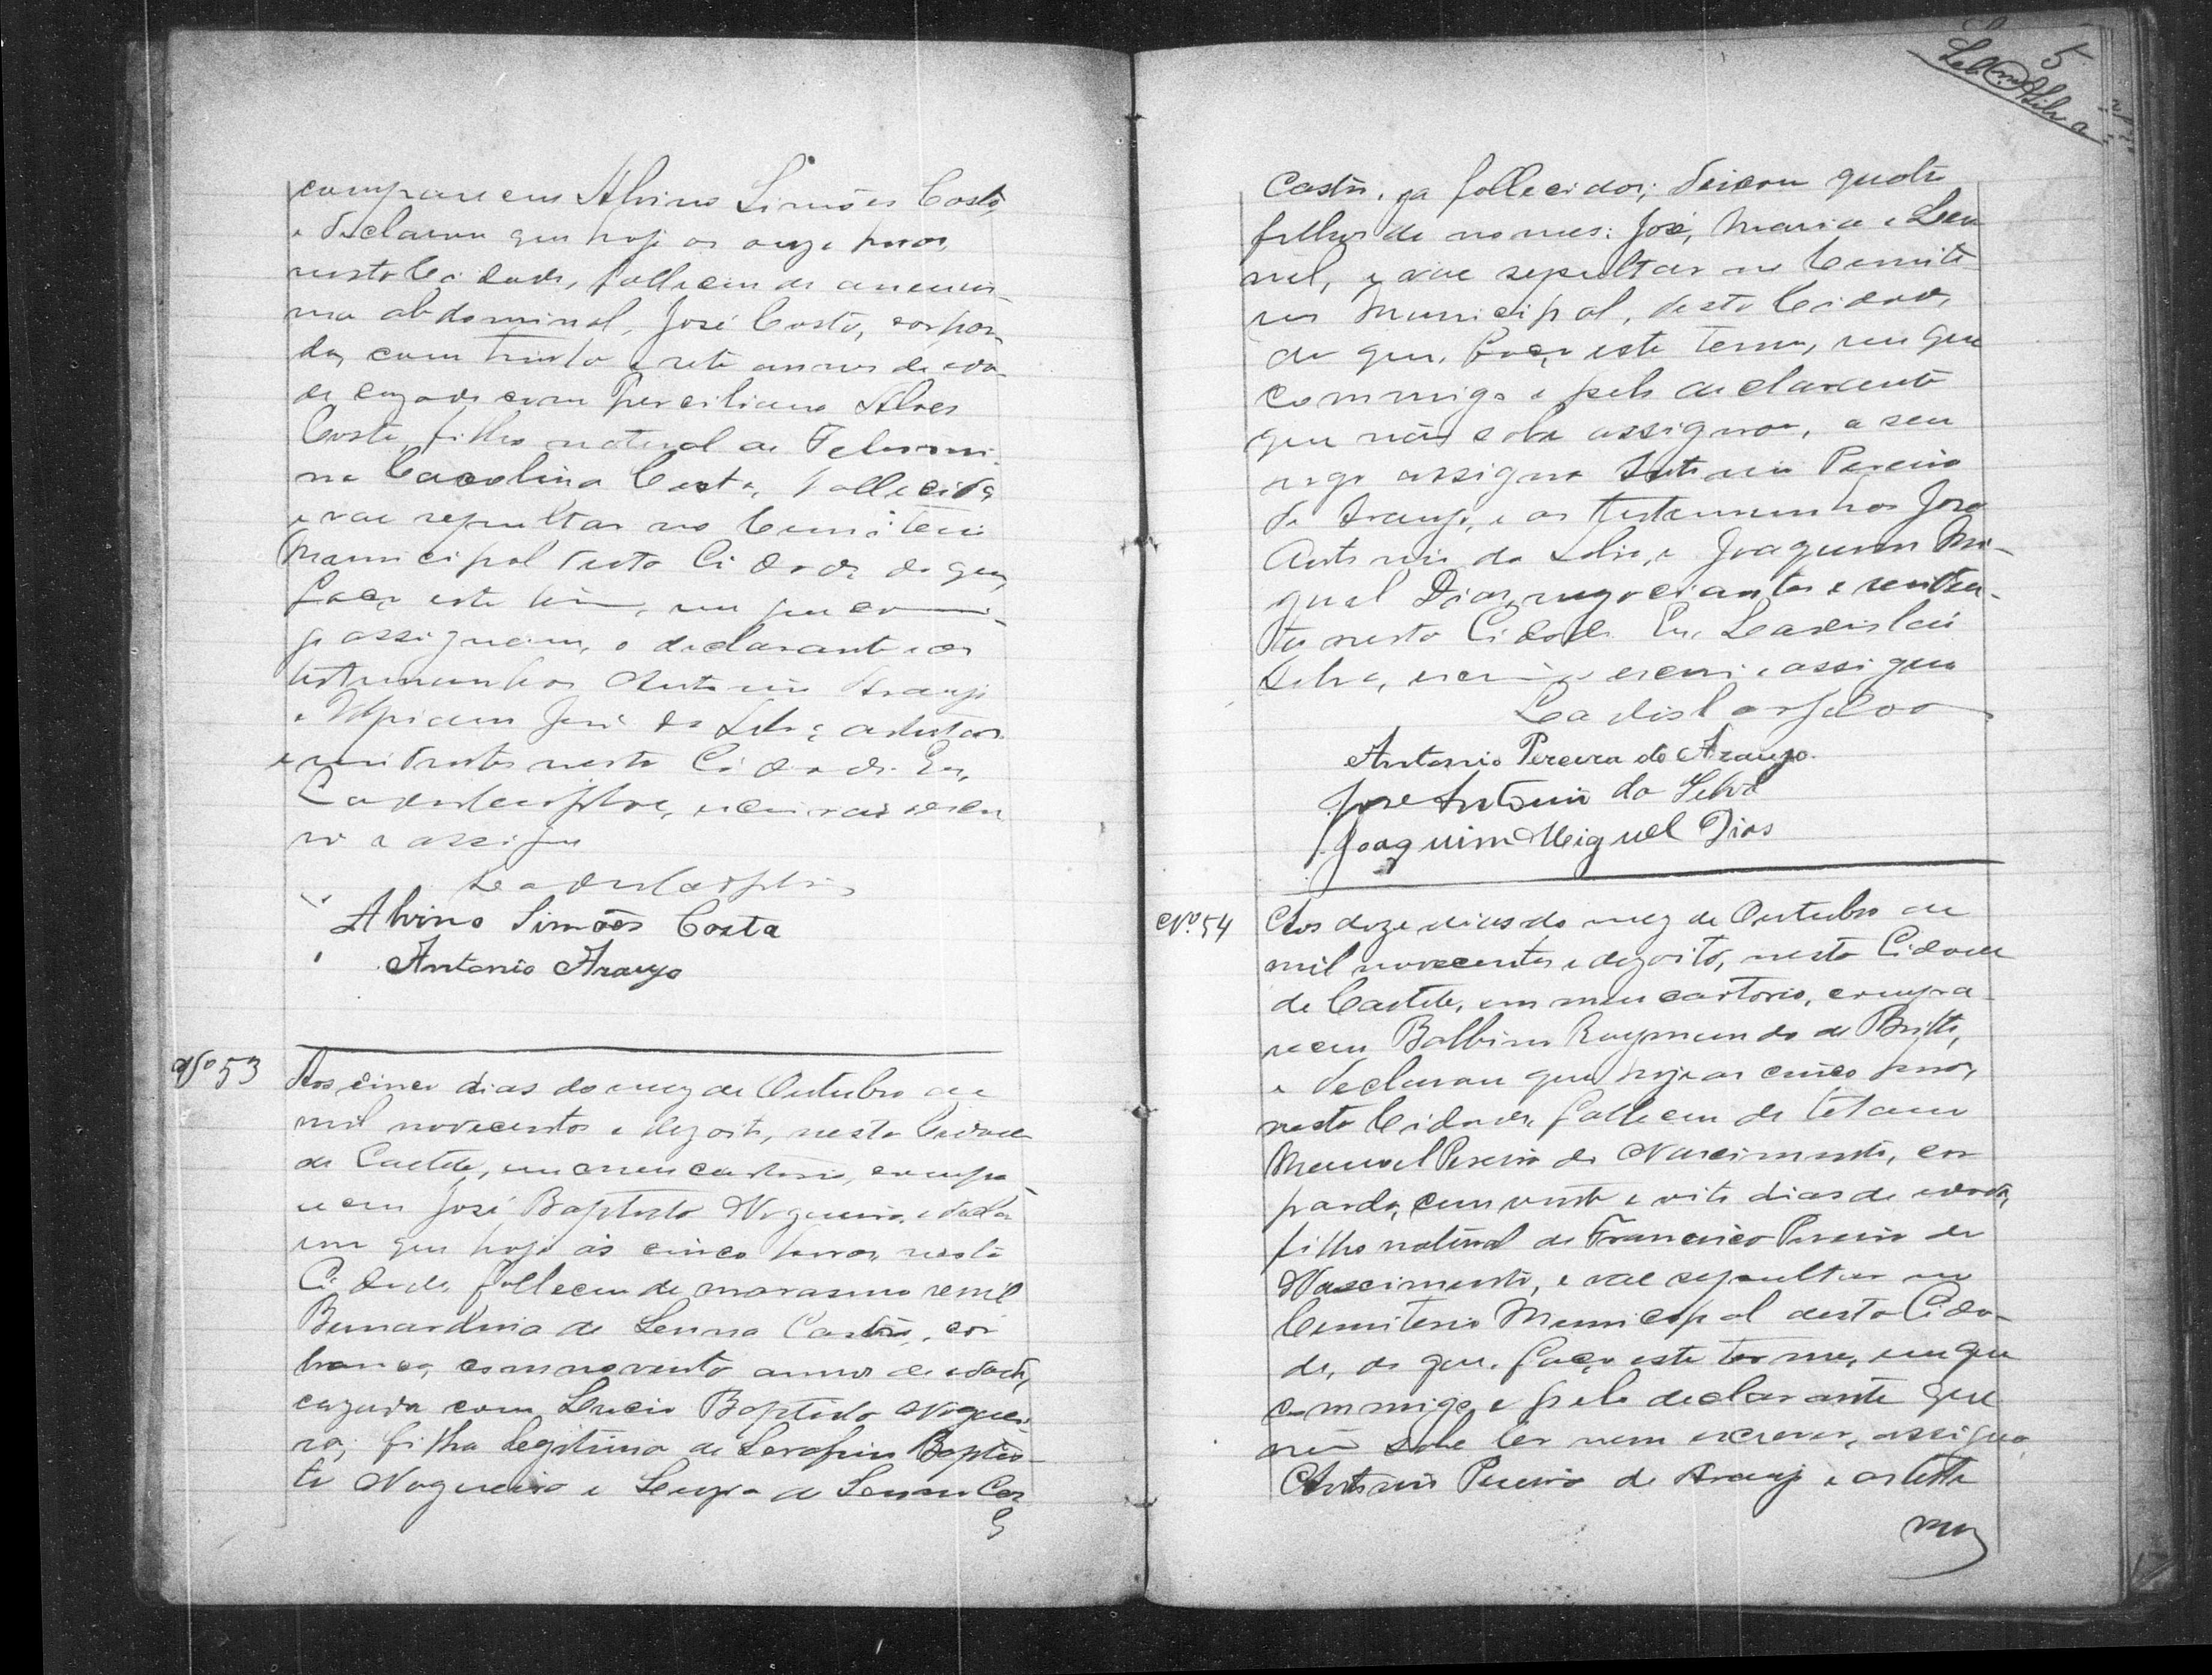 compareceu Alvino Simões Costa,
e declarou que hoje as onze horas,
nesta Cidade, falleceu de aneuris-
ma abdominal, José Costa, cor par-
da, com trinta e sete annos de eda-
de cazado com Perciliana Alves
Costa, filho natural de Felismi-
na Carolina Costa, fallecida
e vae sepultar no Cemiterio
Municipal desta Cidade do que,
faço este termo, em que commi-
go assignam, o declarante e as
testemunhas Antonio Araujo
e José da Silva, adultos
e residentes nesta Cidade. Eu,
Ladislau Silva, escrivão escre
vi e assigno
Ladislau Silva
Alvino Simões Costa
Antonio Araujo
Nº 53
Aos cinco dias do mez de Outubro de
mil novecentos e dezoito, nesta Cidade
de Caeteté, em meu cartorio, compa-
receu José Baptista Nogueira, e decla
rou que hoje ás cinco horas nesta
Cidade, falleceu de marasmo senil
Bernardina de Senna Castro, cor
branca, com noventa annos de edade,
cazada com Lucio Baptista Noguei-
ra, filha legitima de Serafim Baptis-
ta Nogueira e de Senna Cas
5
Castro, ja fallecidos; deixou quatro
filhos de nomes: José, Maria e
e vae sepultar no Cemite-
rio Municipal, desta Cidade,
do que, faço este termo, em que
commigo e pelo declarante
que não sabe assignar, a seu
rogo assigna Antonio Pereira
de Araujo, e as testemunhas José
Antonio da Silva, e Joaquim Mi-
guel Dias, negociantes e residen-
tes nesta Cidade. Eu, Ladislau
Silva, escrivão escrevi e assigno
Ladislau Silva
Antonio Pereira de Araujo.
José Antonio da Silva
Joaquim Miguel Dias
Nº 54
Aos doze dias do mez de Outubro de
mil novecentos e dezoito, nesta Cidade
de Caeteté, em meu cartorio, compa-
receu Balbino Raymundo de Britto,
e declarou que hoje as cinco horas,
nesta Cidade, falleceu de tetano
Manoel Pereira do Nascimento, cor
parda, com vinte e oito dias de edade,
filho natural de Francisca Pereira do
Nascimento, e vae sepultar no
Cemiterio Municipal desta Cida-
de, do que, faço este termo, em que
commigo e pelo declarante que
não sabe ler nem escrever, assigna
Antonio Pereira de Araujo e as teste
mu